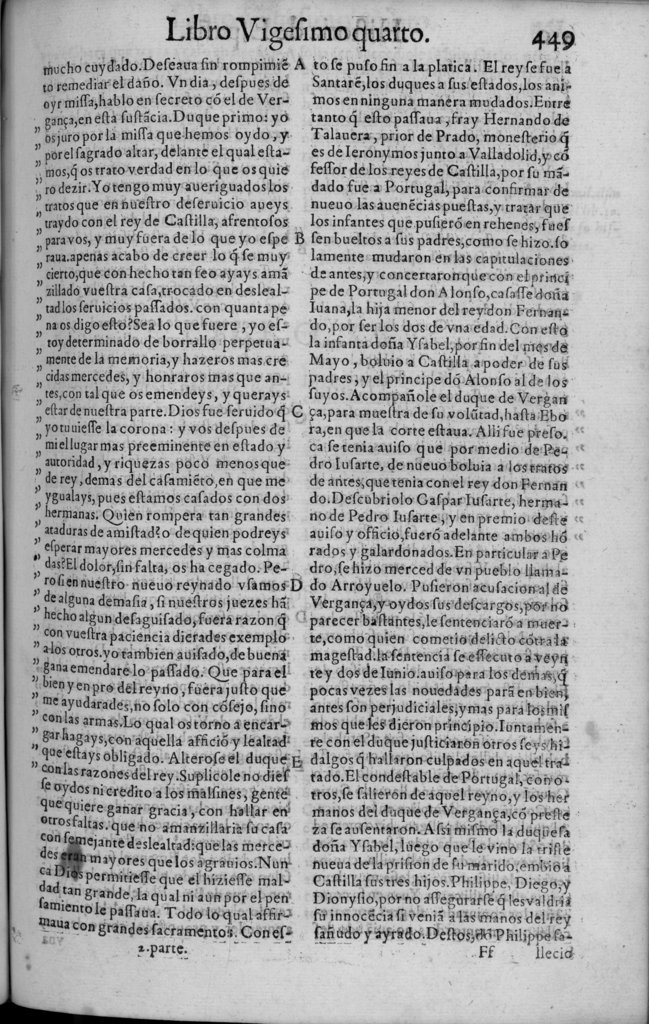 Libro Vigesimo quarto. 449
mucho cuydado. Deseaua sin rompimiē
to remediar el daño. Vn dia, despues de
oyr missa, hablo en secreto cō el de Ver-
gança, en esta sustācia. Duque primo: yo
os juro por la missa que hemos oydo, y
por el sagrado altar, delante el qual esta-
mos, q̄ os trato verdad en lo que os quie
ro dezir. Yo tengo muy aueriguados los
tratos que en nuestro deseruicio aueys
traydo con el rey de Castilla, afrentosos
para vos, y muy fuera de lo que yo espe
raua. apenas acabo de creer lo q̄ se muy
cierto, que con hecho tan feo ayays amā
zillado vuestra casa, trocado en desleal-
tad los seruicios passados. con quanta pe
na os digo esto? Sea lo que fuere, yo es-
toy determinado de borrallo perpetua-
mente de la memoria, y hazeros mas cre
cidas mercedes, y honraros mas que an-
tes, con tal que os emendeys, y querays
estar de nuestra parte. Dios fue seruido q̄
yo tuuiesse la corona: y vos despues de
mi el lugar mas preeminente en estado y
autoridad, y riquezas poco menos que
de rey, demas del casamiēto, en que me
ygualays, pues estamos casados con dos
hermanas. Quien rompera tan grandes
ataduras de amistad? o de quien podreys
esperar mayores mercedes y mas colma
das? El dolor, sin falta, os ha cegado. Pe-
ro si en nuestro nueuo reynado vsamos
de alguna demasia, si nuestros juezes hā
hecho algun desaguisado, fuera razon q̄
con vuestra paciencia dierades exemplo
a los otros. yo tambien auisado, de buena
gana emendare lo passado. Que para el
bien y en pro del reyno, fuera justo que
me ayudarades, no solo con cōsejo, sino
con las armas. Lo qual os torno a encar-
gar hagays, con aquella affició y lealtad
que estays obligado. Alterose el duque
con las razones del rey. Suplicole no dies
se oydos ni credito a los malsines, gente
que quiere ganar gracia, con hallar en
otros faltas. que no amanzillaria su casa
con semejante deslealtad: que las merce-
des eran mayores que los agrauios. Nun
ca Dios permitiesse que el hiziesse mal-
dad tan grande, la qual ni aun por el pen
samiento le passaua. Todo lo qual affir-
maua con grandes sacramentos. Con es-
2. parte.
A
B
C
D
E
to se puso fin a la platica. El rey se fue a
Santarē, los duques a sus estados, los ani-
mos en ninguna manera mudados. Entre
tanto q̄ esto passaua, fray Hernando de
Talauera, prior de Prado, monesterio q̄
es de Ieronymos junto a Valladolid, y cō
fessor de los reyes de Castilla, por su mā-
dado fue a Portugal, para confirmar de
nueuo las auenēcias puestas, y tratar que
los infantes que pusierō en rehenes, fues
sen bueltos a sus padres, como se hizo. so
lamente mudaron en las capitulaciones
de antes, y concertaron que con el princi
pe de Portugal don Alonso, casasse doña
Iuana, la hija menor del rey don Fernan-
do, por ser los dos de vna edad. Con esto
la infanta doña Ysabel, por fin del mes de
Mayo, boluio a Castilla a poder de sus
padres, y el principe dō Alonso al de los
suyos. Acompañole el duque de Vergan
ça, para muestra de su volūtad, hasta Ebo
ra, en que la corte estaua. Alli fue preso.
ca se tenia auiso que por medio de Pe-
dro Iusarte, de nueuo boluia a los tratos
de antes, que tenia con el rey don Fernan
do. Descubriolo Gaspar Iusarte, herma-
no de Pedro Iusarte, y en premio deste
auiso y officio, fuerō adelante ambos hō
rados y galardonados. En particular a Pe
dro, se hizo merced de vn pueblo llama-
do Arroyuelo. Pusieron acusacion al de
Vergança, y oydos sus descargos, por no
parecer bastantes, le sentenciarō a muer-
te, como quien cometio delicto cōtra la
magestad. la sentencia se effecuto a veyn
te y dos de Iunio. auiso para los demas, q̄
pocas vezes las nouedades parā en bien,
antes son perjudiciales, y mas para los mis
mos que les dieron principio. Iuntamen-
te con el duque justiciaron otros seys hi-
dalgos q̄ hallaron culpados en aquel tra-
tado. El condestable de Portugal, con o-
tros, se salieron de aquel reyno, y los her
manos del duque de Vergança, cō preste
za se ausentaron. Assi mismo la duquesa
doña Ysabel, luego que le vino la triste
nueua de la prision de su marido, embio a
Castilla sus tres hijos. Philippe, Diego, y
Dionysio, por no assegurarse q̄ les valdria
su innocēcia si veniā a las manos del rey
sañudo y ayrado. Destos, dō Philippe fa-
Ff llecio